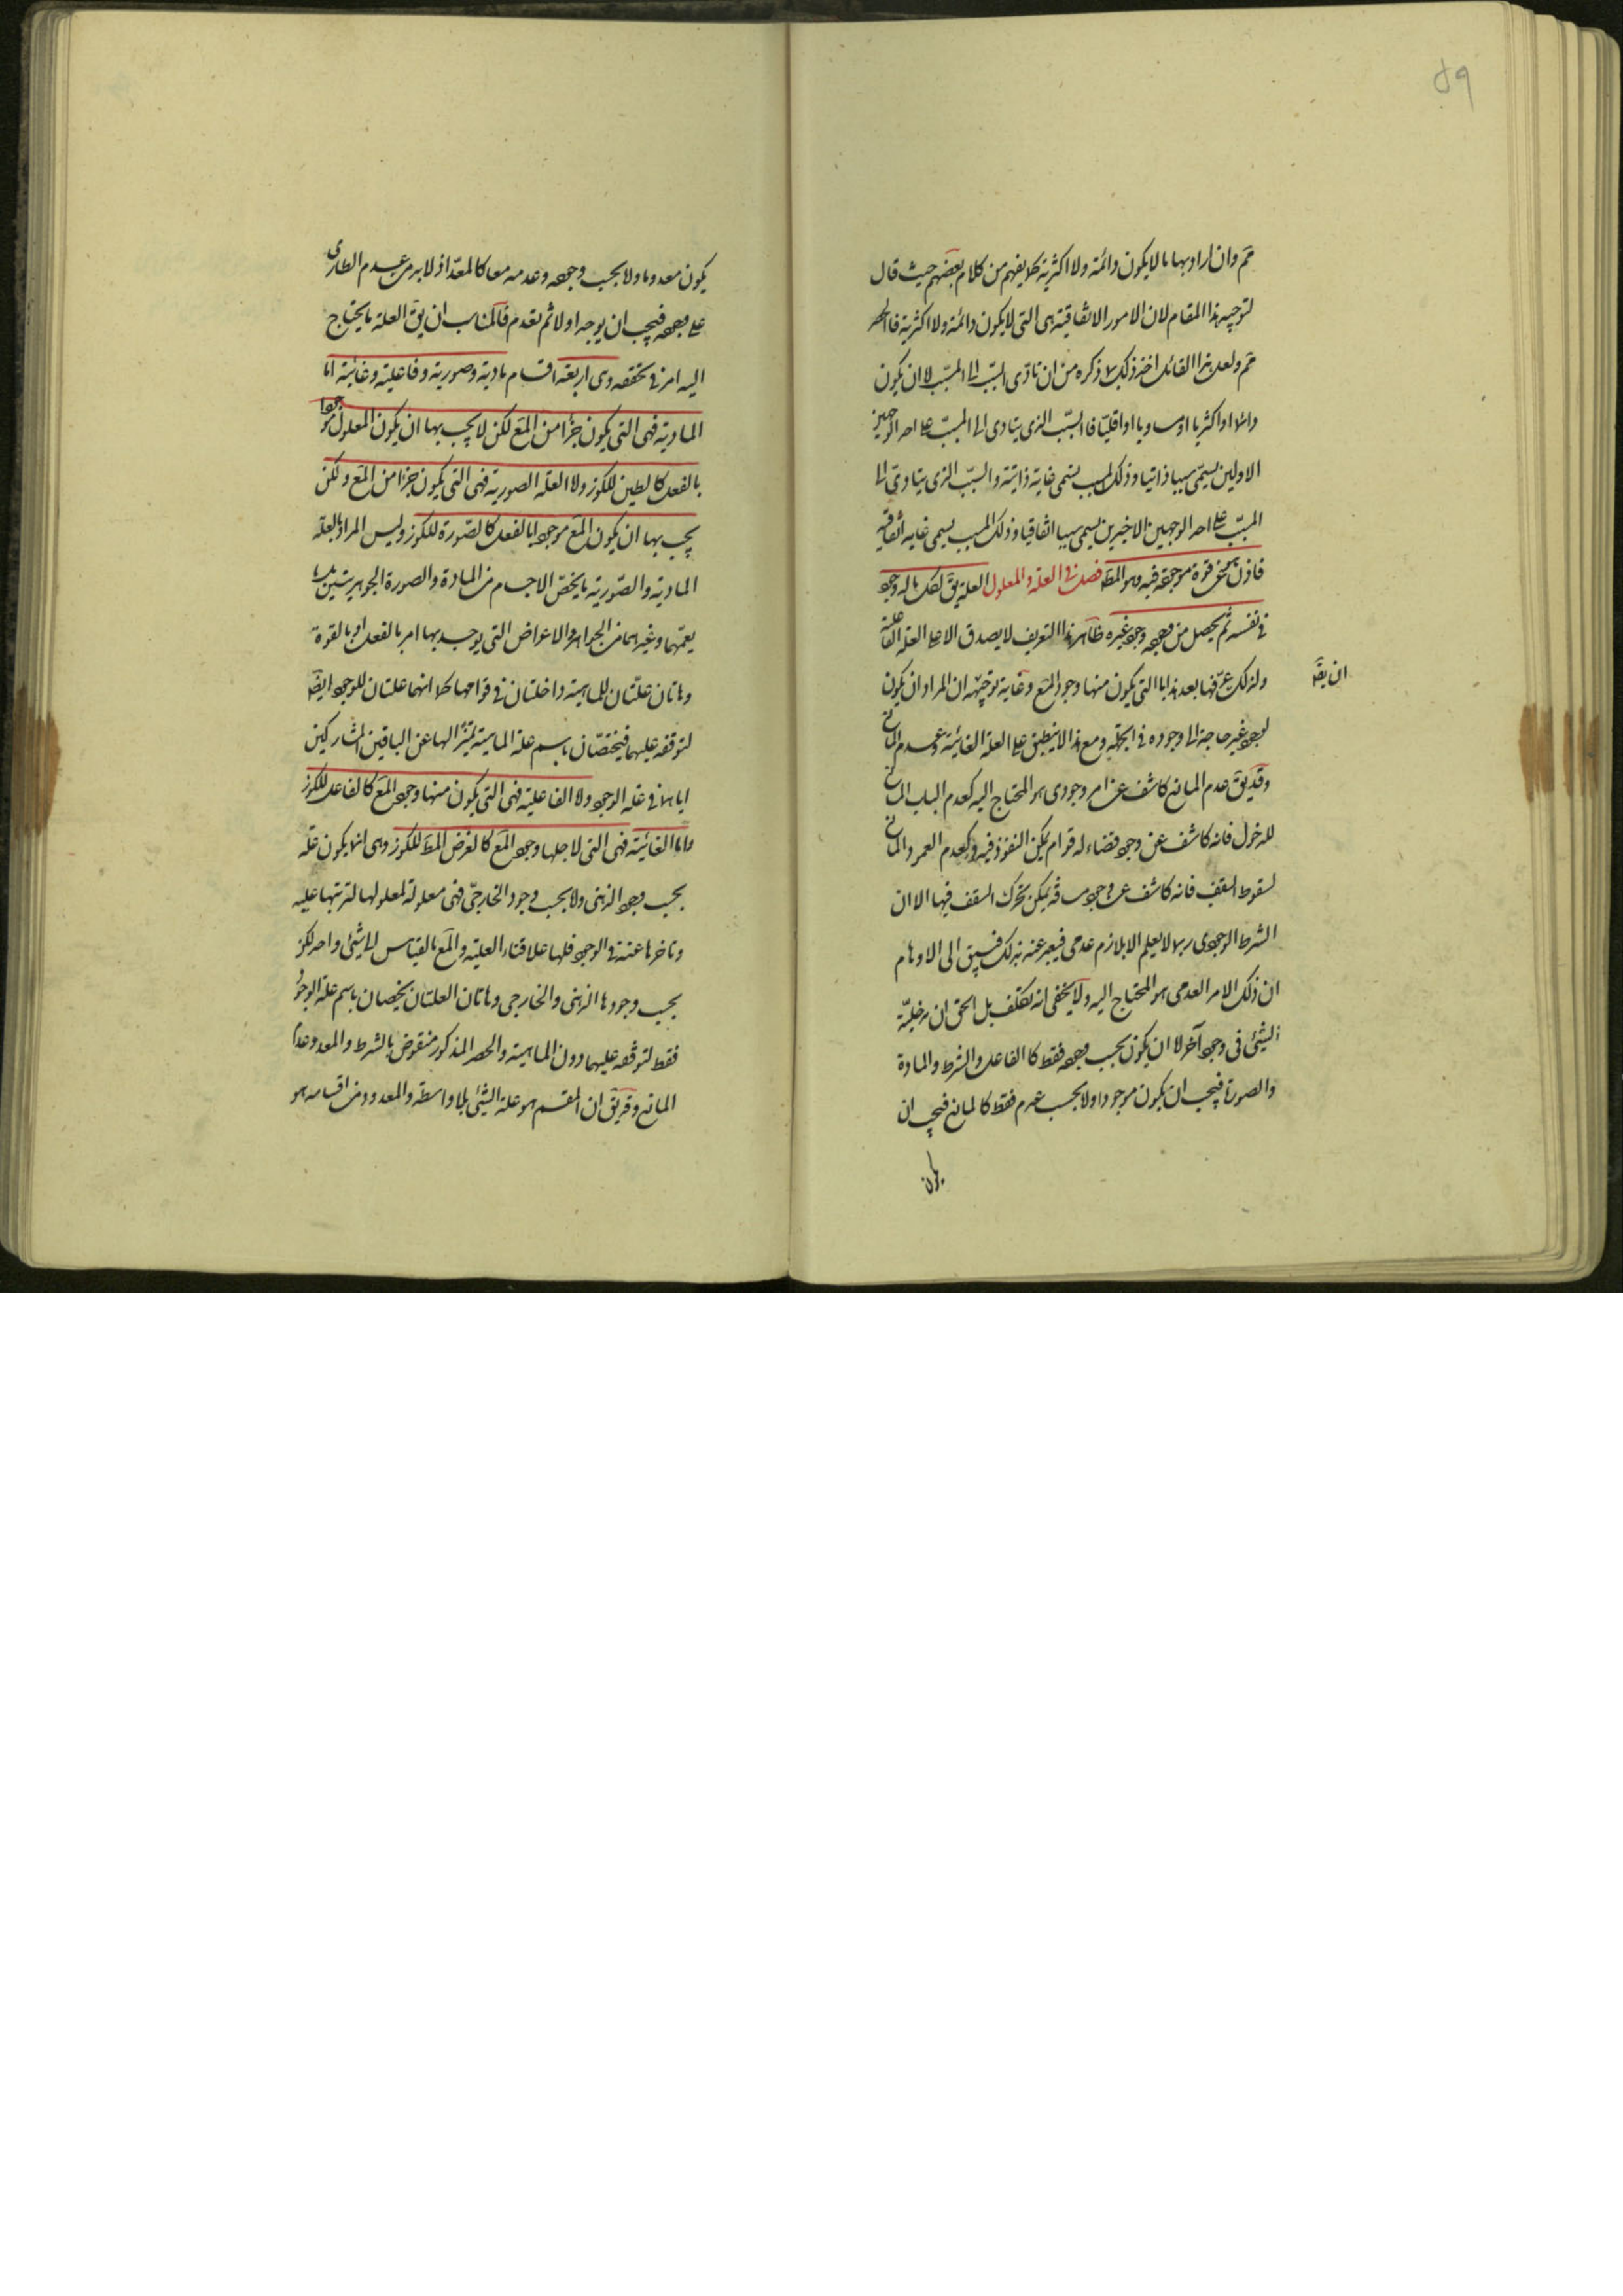 ٥٩
مم وان اراد بها ما لا يكون دائمة ولا اكثرية كما يفهم من كلام بعضهم حيث قال
لتوجيه هذا المقام لان الامور الاتفاقية هى التى لا يكون دائمة ولا اكثرية فالحصر
مم ولعل هذا القائل اخذ ذلك مما ذكره من ان تادى السبب الى المسبب اما ان يكون
دائما او اكثريا او مساويا او اقليا فالسبب الذى يتادى الى المسبب على احد الوجهين
الاولين يسمى سببا ذاتيا وذلك المسبب يسمى غاية ذاتية والسبب الذى يتادى الى
المسبب على احد الوجهين الاخيرين يسمى سببا اتفاقيا وذلك المسبب يسمى غاية اتفاقية
فاذن هى عن قوة موجودة فيه وهو المط فصل فى العلة والمعلول العلة يق لكل ما له وجود
فى نفسه ثم يحصل من وجوده وجود غيره ظاهر هذا التعريف لا يصدق الا على العلة الفاعلية
ولذلك عرفها بعد هذا بالتى يكون منها وجود المع وغاية توجيهه ان المراد ان يكون
ان يق
لوجود غيره حاجة الى وجوده فى الجملة ومع هذا لا ينطبق على العلة الغائية وعدم المانع
وقد يق عدم المانع كاشف عن امر وجودى هو المحتاج اليه كعدم الباب المانع
للدخول فانه كاشف عن وجود فضاء له قوام يمكن النفوذ فيه وكعدم العمود المانع
لسقوط السقف فانه كاشف عن وجود مسافة يمكن تحرك السقف فيها الا ان
الشرط الوجودى ربما لا يعلم الا بلازم عدمى فيعبر عنه بذلك فيسبق الى الاوهام
ان ذلك الامر العدمى هو المحتاج اليه ولا يخفى انه تكلف بل الحق ان مدخلية
الشئ فى وجود آخر اما ان يكون بحسب وجوده فقط كالفاعل والشرط والمادة
والصورة فيجب ان يكون موجودا واما بحسب عدمه فقط كالمانع فيجب ان
يكون
يكون معدوما واما بحسب وجوده وعدمه معا كالمعد اذ لا بد من عدمه الطارى
على وجوده فيجب ان يوجد اولا ثم يعدم فالمناسب ان يق العلة ما يحتاج
اليه امر فى تحققه وهى اربعة اقسام مادية وصورية وفاعلية وغائية اما
المادية فهى التى يكون جزأ من المع لكن لا يجب بها ان يكون المعلول موجودا
بالفعل كالطين للكوز واما العلة الصورية فهى التى يكون جزأ من المع ولكن
يجب بها ان يكون المع موجودا بالفعل كالصورة للكوز وليس المراد بالعلة
المادية والصورية ما يخص الاجسام من المادة والصورة الجوهريتين بل ما
يعمهما وغيرهما من الجواهر والاعراض التى يوجد بها امر بالفعل او بالقوة
وهاتان علتان للماهية داخلتان فى قوامها كما انهما علتان للوجود ايضا
لتوقفه عليهما فيختصان باسم علة الماهية تميزا لها عن الباقين المشاركين
اياهما فى علة الوجود واما الفاعلية فهى التى يكون منها وجود المع كالفاعل للكوز
واما الغائية فهى التى لاجلها وجود المع كالغرض المط للكوز وهى انما يكون علة
بحسب وجودها الذهنى واما بحسب وجود الخارجى فهى معلولة لمعلولها لترتبها عليه
وتاخرها عنه فى الوجود فلها علاقتا العلية والمع بالقياس الى شئ واحد لكن
بحسب وجودها الذهنى والخارجى وهاتان العلتان يخصان باسم علة الوجود
فقط لتوقفه عليهما دون الماهية والحصر المذكور منقوض بالشرط والمعد وعدم
المانع وقد يق ان المقسم هو علة الشئ بلا واسطة والمعدود من اقسامه هو